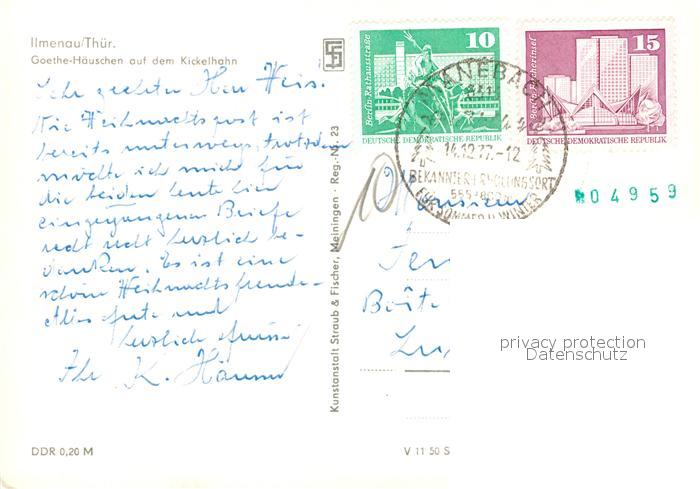 Ilmenau/Thür.
Goethe-Häuschen auf dem Kickelhahn
Sehr geehrter Herr Weis!
Die Weihnachtspost ist
bereits unterwegs, trotzdem
möchte ich mich für
die beiden heute hier
eingegangenen Briefe
recht recht herzlich be-
danken. Es ist eine
schöne Weihnachtsfreude.
Alles gute und
herzlich
Ihr K.
DDR 0,20 M
Kunstanstalt Straub & Fischer, Meiningen - Reg.-Nr. 23
V 11 50 S
10
Berlin-Rathausstraße
DEUTSCHE DEMOKRATISCHE REPUBLIK
15
Berlin-Fischerinsel
DEUTSCHE DEMOKRATISCHE REPUBLIK
MANEBACH
14.12.77.-12
BEKANNTER ERHOLUNGSORT
FÜR SOMMER U. WINTER
04959
10
Monsieur
Boîte
privacy protection
Datenschutz